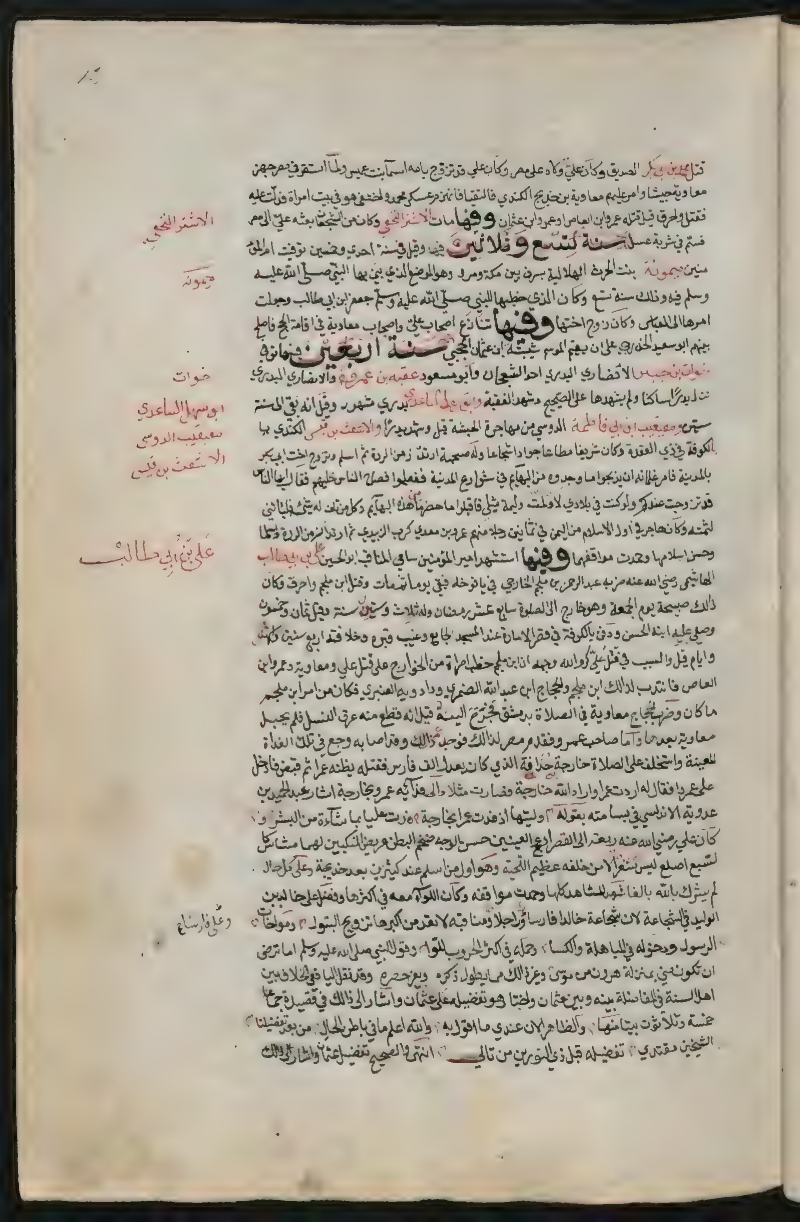 قتل محمد بن ابي بكر الصديق وكان علي ولاه على مصر وكان علي قد تزوج بامه اسما بنت عميس ولما استقر في مصر جهز
معاوية جيشا وامر عليهم معاوية بن خديج الكندي فالتقيا فانهزم عسكر محمد واختفى هو في بيت امراة فدلت عليه
فقتل واحرق قتله عمرو ابن العاص وعمرو ابن عثمان وفيها مات الاشتر النخعي وكان من الشجعان بعثه علي الى مصر
فسم في شربة عسل سنة تسع وثلاثين فيها وقيل في سنة احدى وخمسين توفيت ام المؤ
منين ميمونة بنت الحرث الهلالية بسرف بين مكة ومر وهو الموضع الذي بنى بها النبي صلى الله عليه
وسلم فيه وذلك سنة سبع وكان الذي خطبها للنبي صلى الله عليه وسلم جعفر ابن ابي طالب وجعلت
امرها الى العباس وكان زوج اختها وفيها تنازع اصحاب علي واصحاب معاوية في اقامة الحج فاصلح
بينهم ابو سعيد الخدري على ان يقيم الموسم شيبة ابن عثمان الحجبي سنة اربعين فيها توفي
خوات بن جبير الانصاري البدري احد الشجعان وابو مسعود عقبة بن عمرو الانصاري البدري
نزل بدرا ساكنا ولم يشهدها على الصحيح وشهد العقبة وابو سهل الساعدي بدري مشهور وقيل انه بقي الى سنة
ستين ومعيقيب ابن ابي فاطمة الدوسي من مهاجرة الحبشة قيل وشهد بدرا والاشعث بن قيس الكندي بها
الكوفة في ذي القعدة وكان شريفا مطاعا جوادا شجاعا وله صحبة ارتد زمن الردة ثم اسلم وتزوج اخت ابي بكر
بالمدينة فامر غلمانه ان يذبحوا ما وجدوه من البهائم في شوارع المدينة ففعلوا فصاح الناس عليهم فقال ايها الناس
قد تزوجت عندكم ولو كنت في بلادي لاولمت وليمة مثلي فاقبلوا ما حضر من هذه البهائم وكل من تلف له شيء فلياتني
لثمنه وكان هاجر في اول الاسلام من اليمن في ثمانين رجلا منهم عمرو بن معدي كرب الزبيدي ثم ارتد زمن الردة واسلما
وحسن اسلامهما وحمدت مواقفهما وفيها استشهد امير المؤمنين سامي المناقب ابو الحسين علي بن ابي طالب
الهاشمي رضي الله عنه ضربه عبد الرحمن بن ملجم الخارجي في يافوخه فبقي يوما ثم مات وقتل ابن ملجم واحرق وكان
ذلك صبيحة يوم الجمعة وهو خارج الى الصلوة سابع عشر رمضان وله ثلاث وستين سنة وقيل ثمان وخمسون
وصلى عليه ابنه الحسن ودفن بالكوفة في قصر الامارة عند المسجد الجامع وغيب قبره وخلافته اربع سنين واشهر
وايام قيل والسبب في قتل علي كرم الله وجهه ان ابن ملجم خطب امراة من الخوارج على قتل علي ومعاوية وعمرو ابن
العاص فانتدب لذلك ابن ملجم والحجاج ابن عبد الله الضمري ودادويه العنبري فكان من امر ابن ملجم
ما كان وضرب الحجاج معاوية في الصلاة بدمشق فجرح اليته قيل انه قطع منه عرق النسل فلم يحبل
معاوية بعدها واما صاحب عمرو فقدم مصر لذلك فوجد ذلك وقد اصابه وجع في تلك الغداة
المعينة واستخلف على الصلاة خارجة حذافة الذي كان يعدل الف فارس فقتله يظنه عمرا ثم قبض فادخل
على عمر وفقال له اردت عمرا واراد الله خارجة فصارت مثلا والى فدائه عمرو بخارجة اشار عبد المجيد بن
عدويه الاندلسي في بسامته بقوله وليتها اذ فدت عمرا بخارجة فدت عليا بما شاءت من البشر و
كان علي رضي الله عنه ربعة الى القصر ادعج العينين حسن الوجه ضخم البطن عريض المنكبين لهما مشاش
لسبع اصلع ليس له شعر الا من خلفه عظيم اللحية وهو اول من اسلم عند كثير بعد خديجة وعلى كل حال
لم يشرك بالله بالغا شهد المشاهد كلها وحمدت مواقفه وكان اللواء معه في اكثرها وفضل على خالد بن
الوليد في الشجاعة لان شجاعة خالد فارسا وراجلا ومناقبه لا تعد من اكبرها تزويج البتول ومواخات
الرسول ودخوله في المباهلة والكسا وحمله في اكثر الحروب اللوا وقول النبي صلى الله عليه وسلم اما ترضى
ان تكون مني بمنزلة هرون من موسى وغير ذلك مما يطول ذكره ويعز حصره وقد نقل اليافعي الخلاف بين
اهل السنة في المفاضلة بينه وبين عثمان واختار هو تفضيله على عثمان واشار الى ذلك في قصيدة
خمسة وثلاثون بيتا منها والظاهر الان عندي ما اقول به والله اعلم ما في باطن الحال من بعد تفضيلنا
الشيخين معتقدي تفضيله قبل ذي النورين من تالي انتهى والصحيح تفضيل عثمان واشار الى ذلك
الاشتر النخعي
ميمونة
خوات
ابو سهل الساعدي
معيقيب الدوسي
الاشعث بن قيس
علي بن ابي طالب
وعلي فارسا